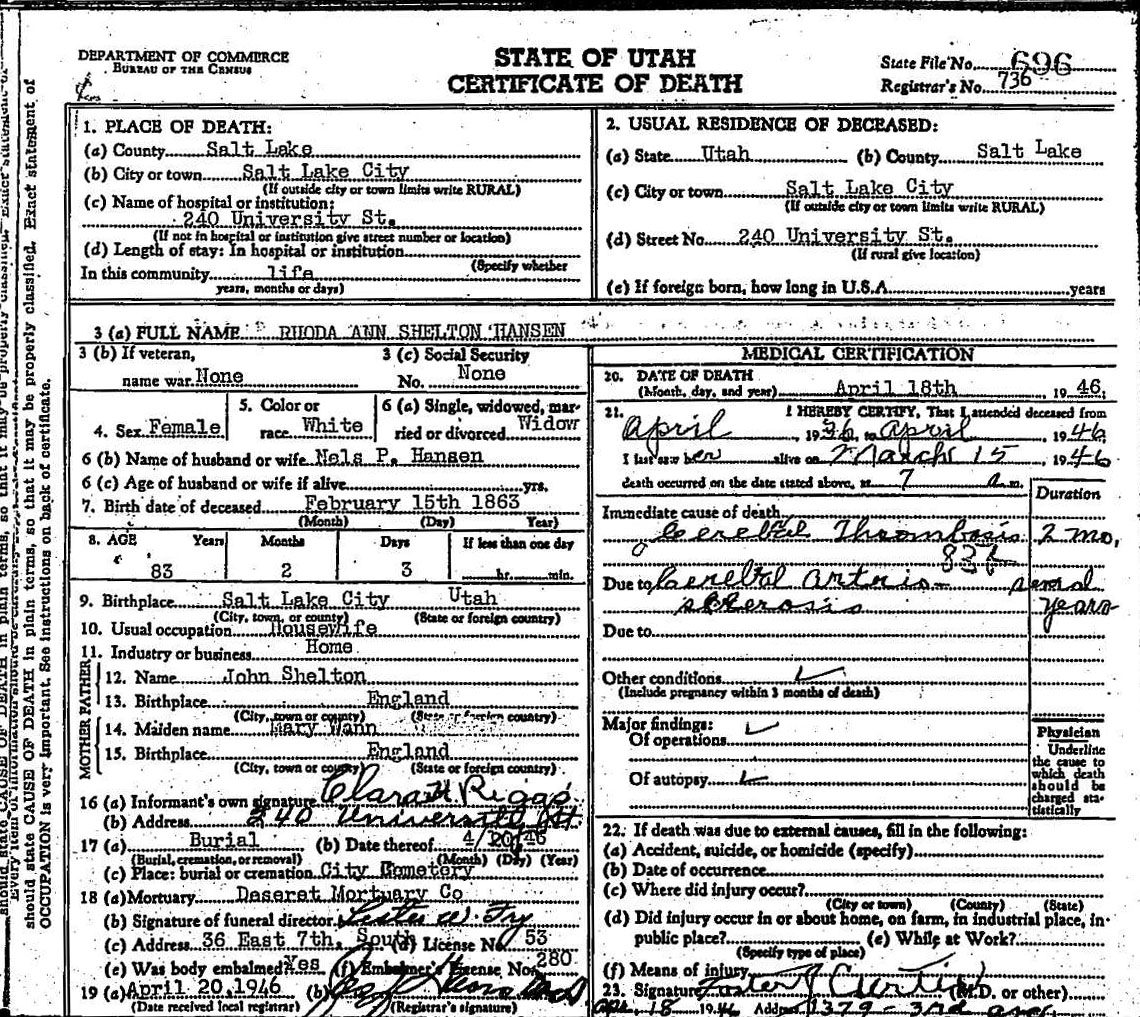 DEPARTMENT OF COMMERCE
BUREAU OF THE CENSUS
STATE OF UTAH
CERTIFICATE OF DEATH
State File No. 696
Registrar's No. 736
1. PLACE OF DEATH:
(a) County Salt Lake
(b) City or town Salt Lake City
(If outside city or town limits write RURAL)
(c) Name of hospital or institution:
240 University St.
(If not in hospital or institution give street number or location)
(d) Length of stay: In hospital or institution
(Specify whether
In this community life
years, months or days)
2. USUAL RESIDENCE OF DECEASED:
(a) State Utah (b) County Salt Lake
(c) City or town Salt Lake City
(If outside city or town limits write RURAL)
(d) Street No. 240 University St.
(If rural give location)
(e) If foreign born, how long in U.S.A. years
3 (a) FULL NAME RHODA ANN SHELTON HANSEN
3 (b) If veteran,
name war None
3 (c) Social Security
No. None
4. Sex Female
5. Color or
race White
6 (a) Single, widowed, mar-
ried or divorced Widow
6 (b) Name of husband or wife Nels P. Hansen
6 (c) Age of husband or wife if alive yrs.
7. Birth date of deceased February 15th 1863
(Month) (Day) Year)
8. AGE Years Months Days If less than one day
83 2 3 hr. min.
9. Birthplace Salt Lake City Utah
(City, town, or county) (State or foreign country)
10. Usual occupation Housewife
11. Industry or business Home
FATHER
12. Name John Shelton
13. Birthplace England
(City, town or county) (State or foreign country)
MOTHER
14. Maiden name Mary Wann
15. Birthplace England
(City, town or county) (State or foreign country)
16 (a) Informant's own signature Clara H Riggs
(b) Address 240 University St.
17 (a) Burial (b) Date thereof 4/20/46
(Burial, cremation, or removal) (Month) (Day) (Year)
(c) Place: burial or cremation City Cemetery
18 (a) Mortuary Deseret Mortuary Co
(b) Signature of funeral director Lester W. Fry
(c) Address 36 East 7th. South (d) License No. 53
(e) Was body embalmed? Yes (f) Embalmer's License No. 280
19 (a) April 20, 1946 (b)
(Date received local registrar) (Registrar's signature)
MEDICAL CERTIFICATION
20. DATE OF DEATH
(Month, day, and year) April 18th 19 46
21. I HEREBY CERTIFY, That I attended deceased from
April, 1936, to April, 1946
I last saw her alive on March 15, 1946
death occurred on the date stated above, at 7 a m.
Duration
Immediate cause of death
Cerebral Thrombosis 2 mo.
83b
Due to Cerebral Arterio- several
sclerosis years
Due to
Other conditions
(Include pregnancy within 3 months of death)
Major findings:
Of operations
Of autopsy
Physician
Underline
the cause to
which death
should be
charged sta-
tistically
22. If death was due to external causes, fill in the following:
(a) Accident, suicide, or homicide (specify)
(b) Date of occurrence
(c) Where did injury occur?
(City or town) (County) (State)
(d) Did injury occur in or about home, on farm, in industrial place, in
public place? (e) While at Work?
(Specify type of place)
(f) Means of injury
23. Signature Foster J Curtis (M.D. or other)
Apr. 18 1946 Address 1379 - 3rd Ave
should state CAUSE OF DEATH in plain terms, so that it may be properly classified. Exact statement of
OCCUPATION is very important. See instructions on back of certificate.